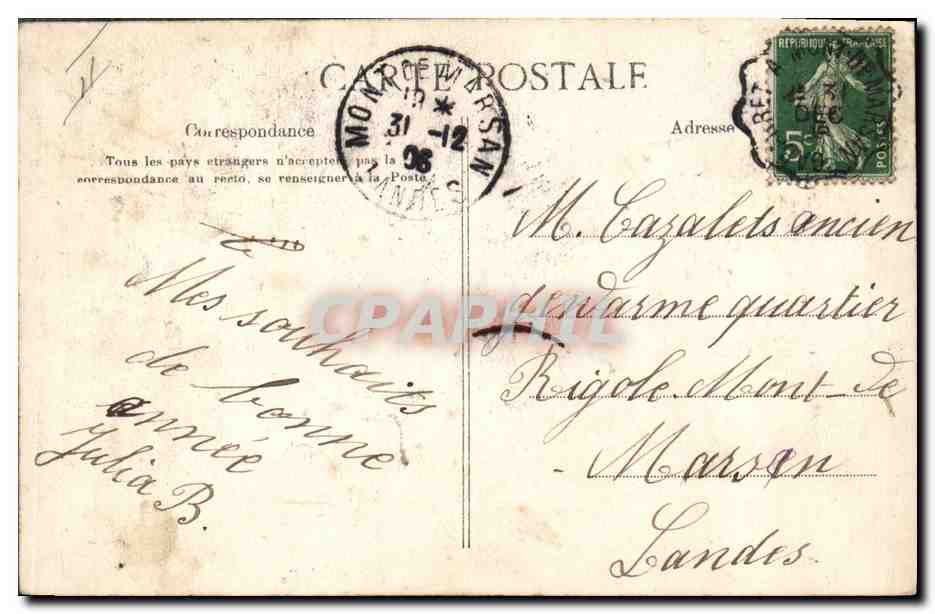 CARTE POSTALE
MONT DE MARSAN
19 *
31 -12
06
LANDES
REPUBLIQUE FRANÇAISE
5c
POSTES
Correspondance
Adresse
Tous les pays etrangers n'acceptent pas la
correspondance au recto, se renseigner à la Poste
Mes souhaits
de bonne
année
Julia B.
CPAPHIL
M. Cazalets ancien
gendarme quartier
Rigole Mont-de
- Marsan
Landes